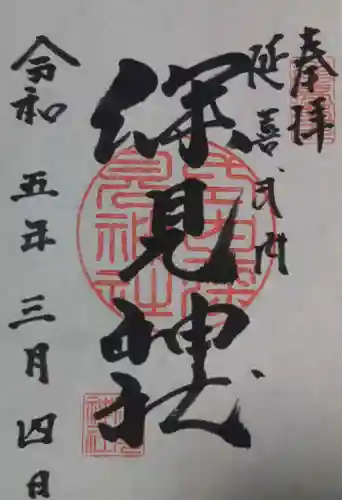 奉拝
延喜式内
深見神社
令和五年三月四日